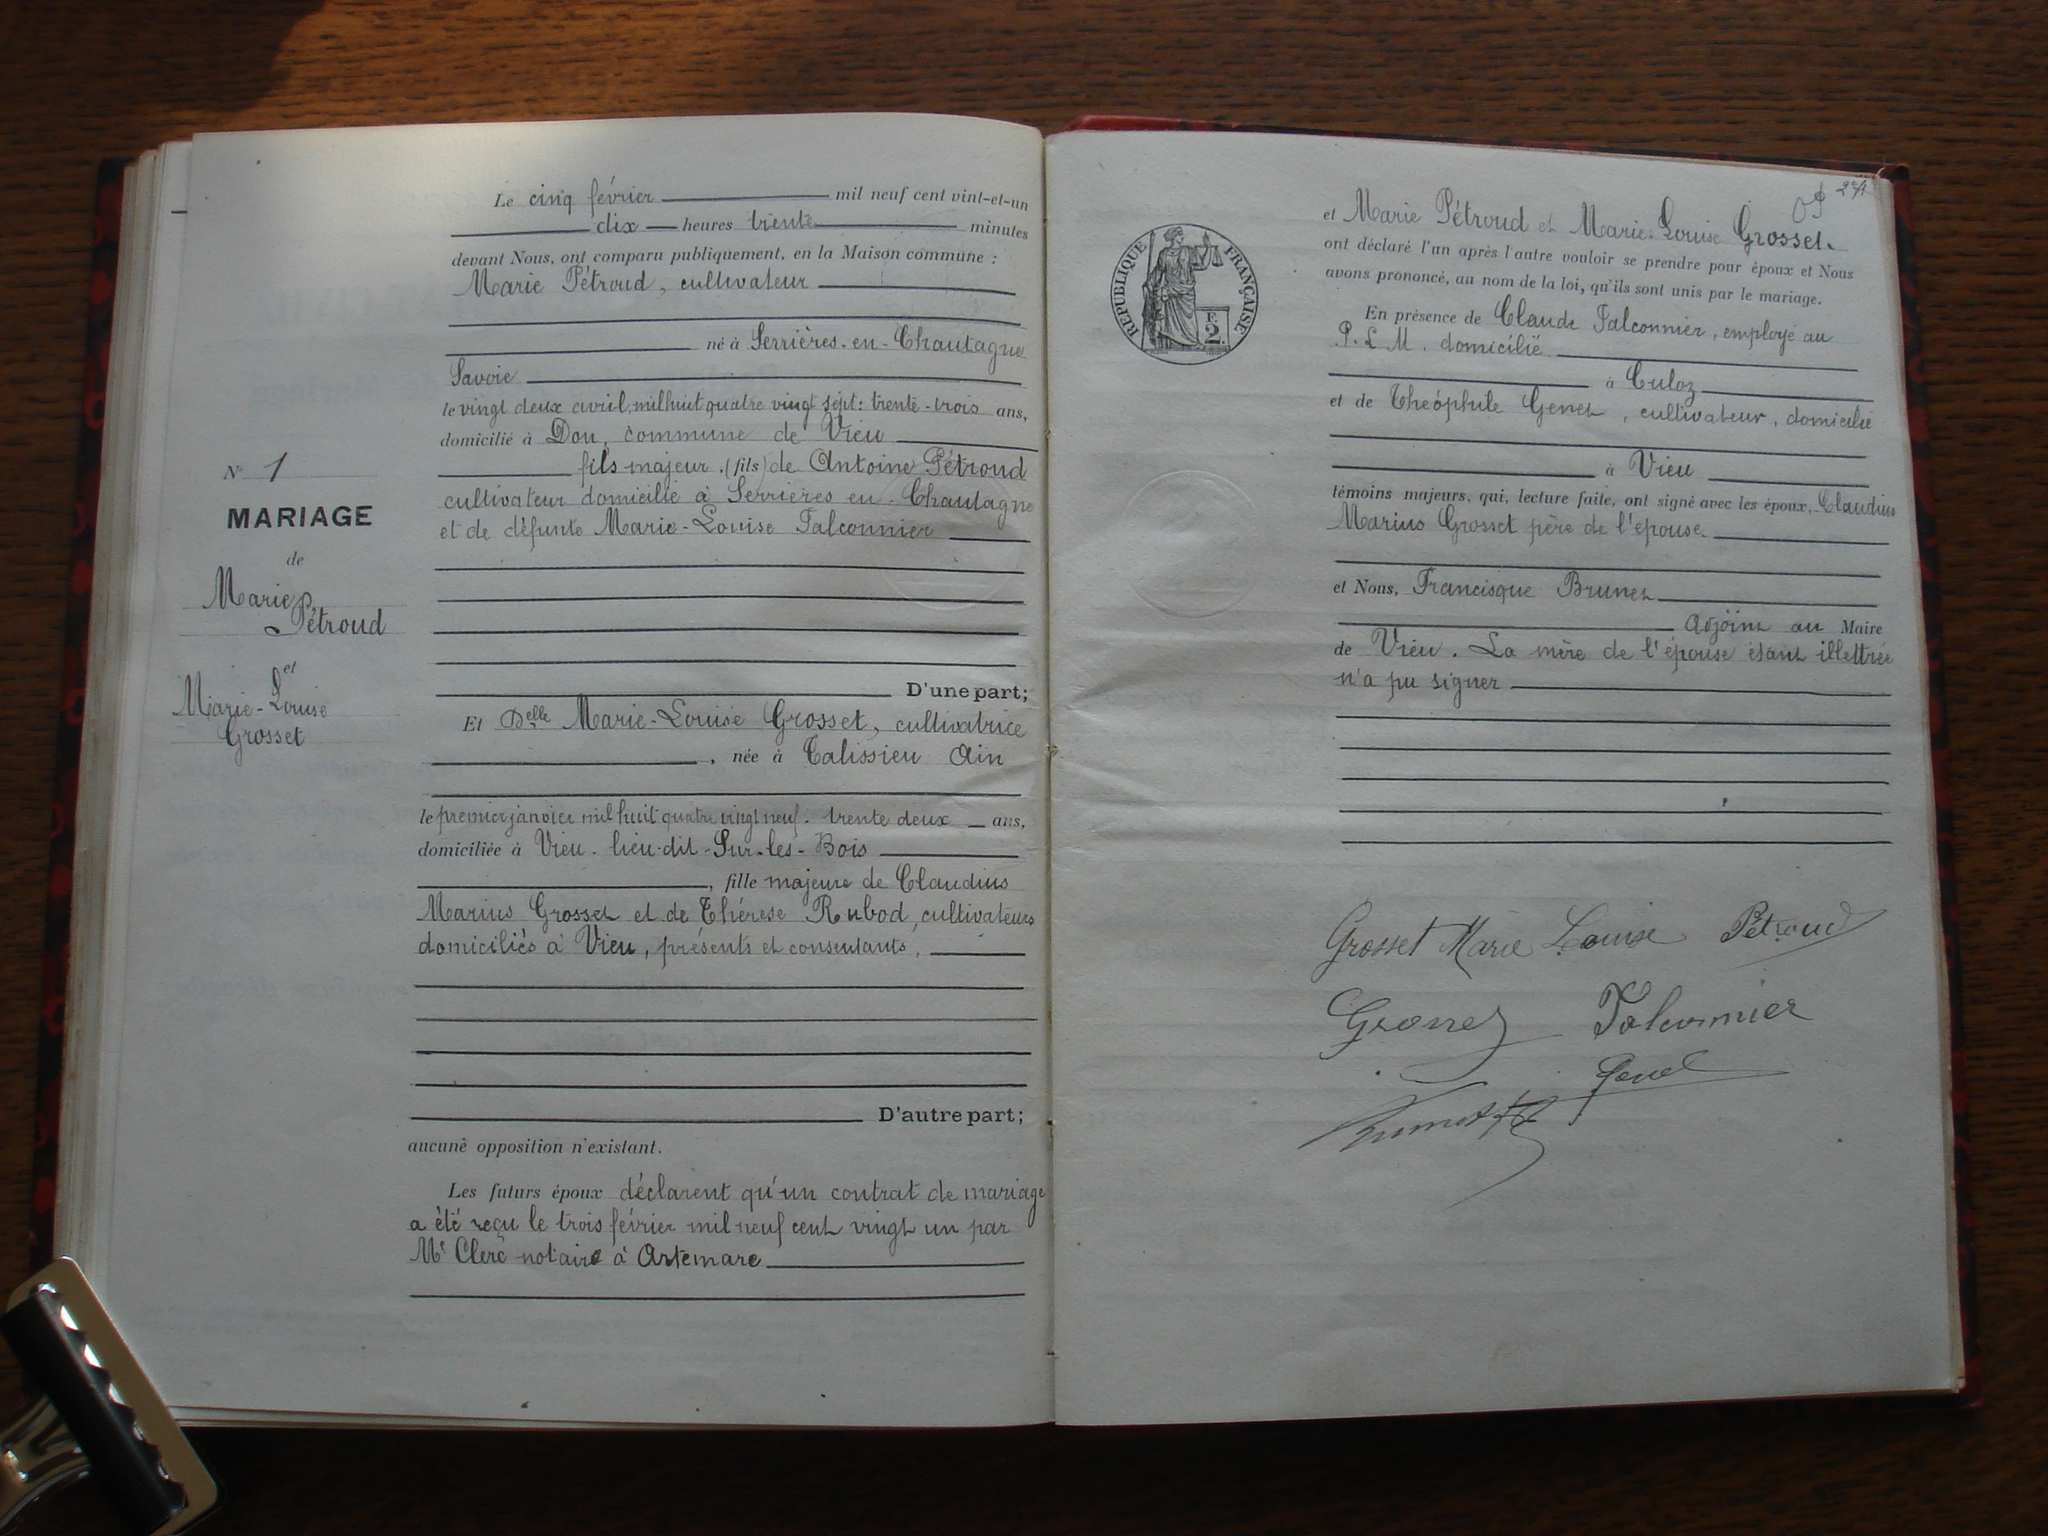 Le cinq février mil neuf cent vint-et-un
dix heures trente minutes
devant Nous, ont comparu publiquement, en la Maison commune :
Marie Pétroud, cultivateur
né à Serrières-en-Chautagne
Savoie
le vingt deux avril, mil huit quatre vingt sept : trente-trois ans,
domicilié à Don, commune de Vieu
fils majeur (fils) de Antoine Pétroud
cultivateur domicilié à Serrières en-Chautagne
et de défunte Marie-Louise Falconnier
N° 1
MARIAGE
de
Marie
Pétroud
et
Marie-Louise
Grosset
D'une part;
Et Delle Marie-Louise Grosset, cultivatrice
, née à Talissieu Ain
le premier janvier mil huit quatre vingt neuf : trente deux ans,
domiciliée à Vieu - lieu-dit-Sur-les-Bois
, fille majeure de Claudius
Marius Grosset et de Thérese Rubod, cultivateurs
domiciliés à Vieu, présents et consentants,
D'autre part;
aucune opposition n'existant.
Les futurs époux déclarent qu'un contrat de mariage
a été reçu le trois février mil neuf cent vingt un par
Me Clerc notaire à Artemare
RÉPUBLIQUE FRANÇAISE
F.
2.
et Marie Pétroud et Marie-Louise Grosset.
ont déclaré l'un après l'autre vouloir se prendre pour époux et Nous
avons prononcé, au nom de la loi, qu'ils sont unis par le mariage.
En présence de Claude Falconnier, employé au
P.L.M. domicilié
à Culoz
et de Théophile Genet, cultivateur, domicilié
à Vieu
témoins majeurs, qui, lecture faite, ont signé avec les époux, Claudius
Marius Grosset père de l'épouse.
et Nous, Francisque Brunet
adjoint au Maire
de Vieu. La mère de l'épouse étant illettrée
n'a pu signer
Grosset Marie Louise Pétroud
Grosset Falconnier
Genet